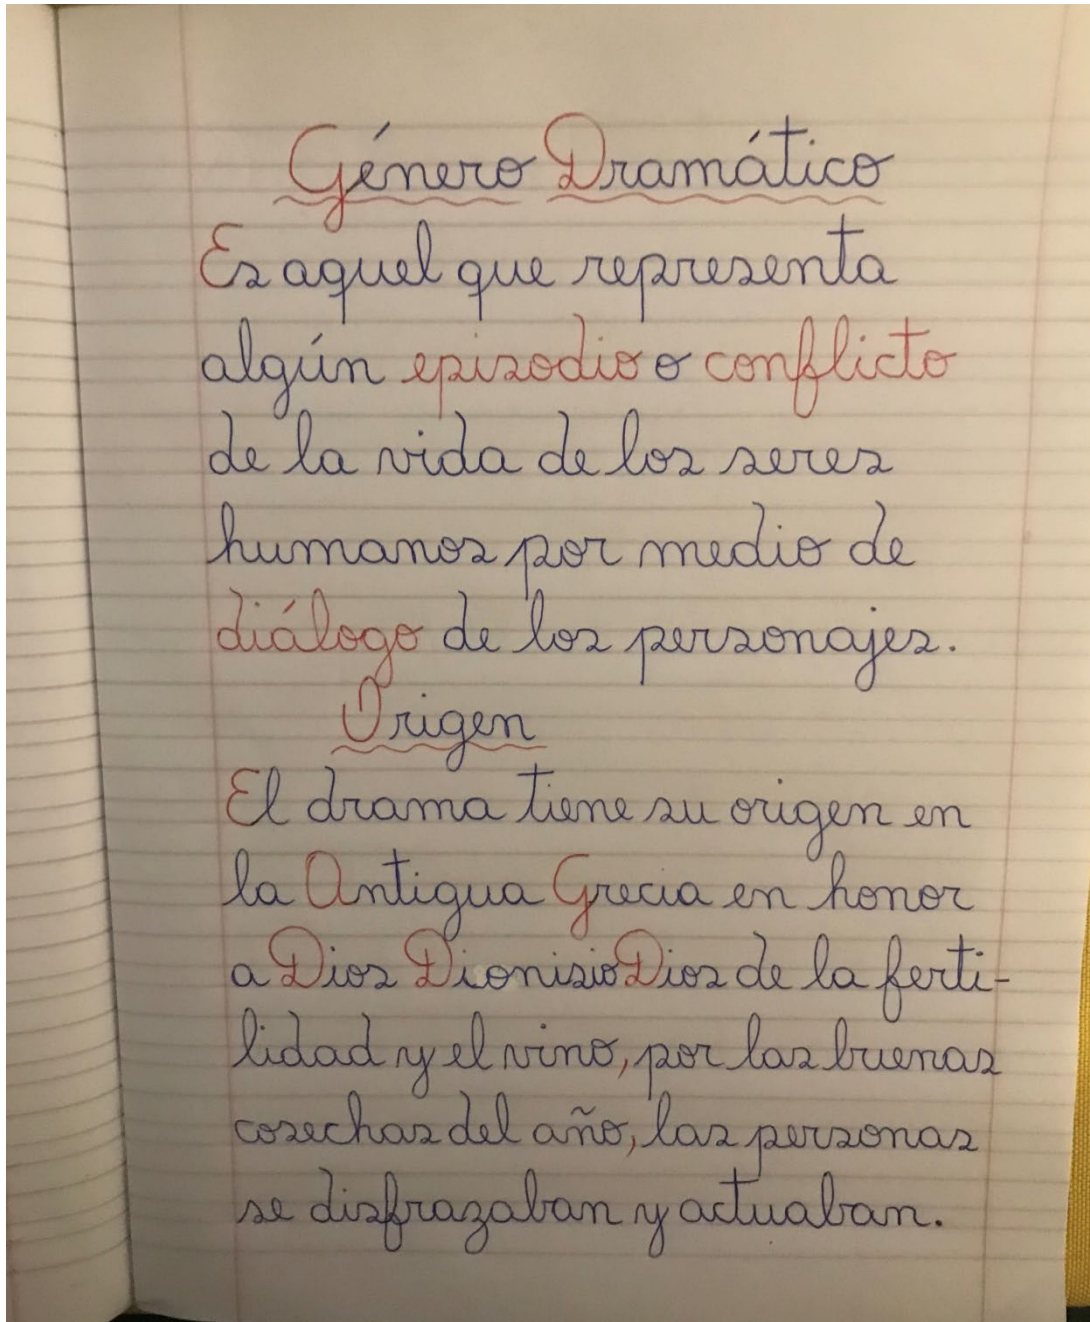 Género Dramático
Es aquel que representa
algún episodio o conflicto
de la vida de los seres
humanos por medio de
diálogo de los personajes.
Origen
El drama tiene su origen en
la Antigua Grecia en honor
a Dios Dionisio Dios de la ferti-
lidad y el vino, por las buenas
cosechas del año, las personas
se disfrazaban y actuaban.